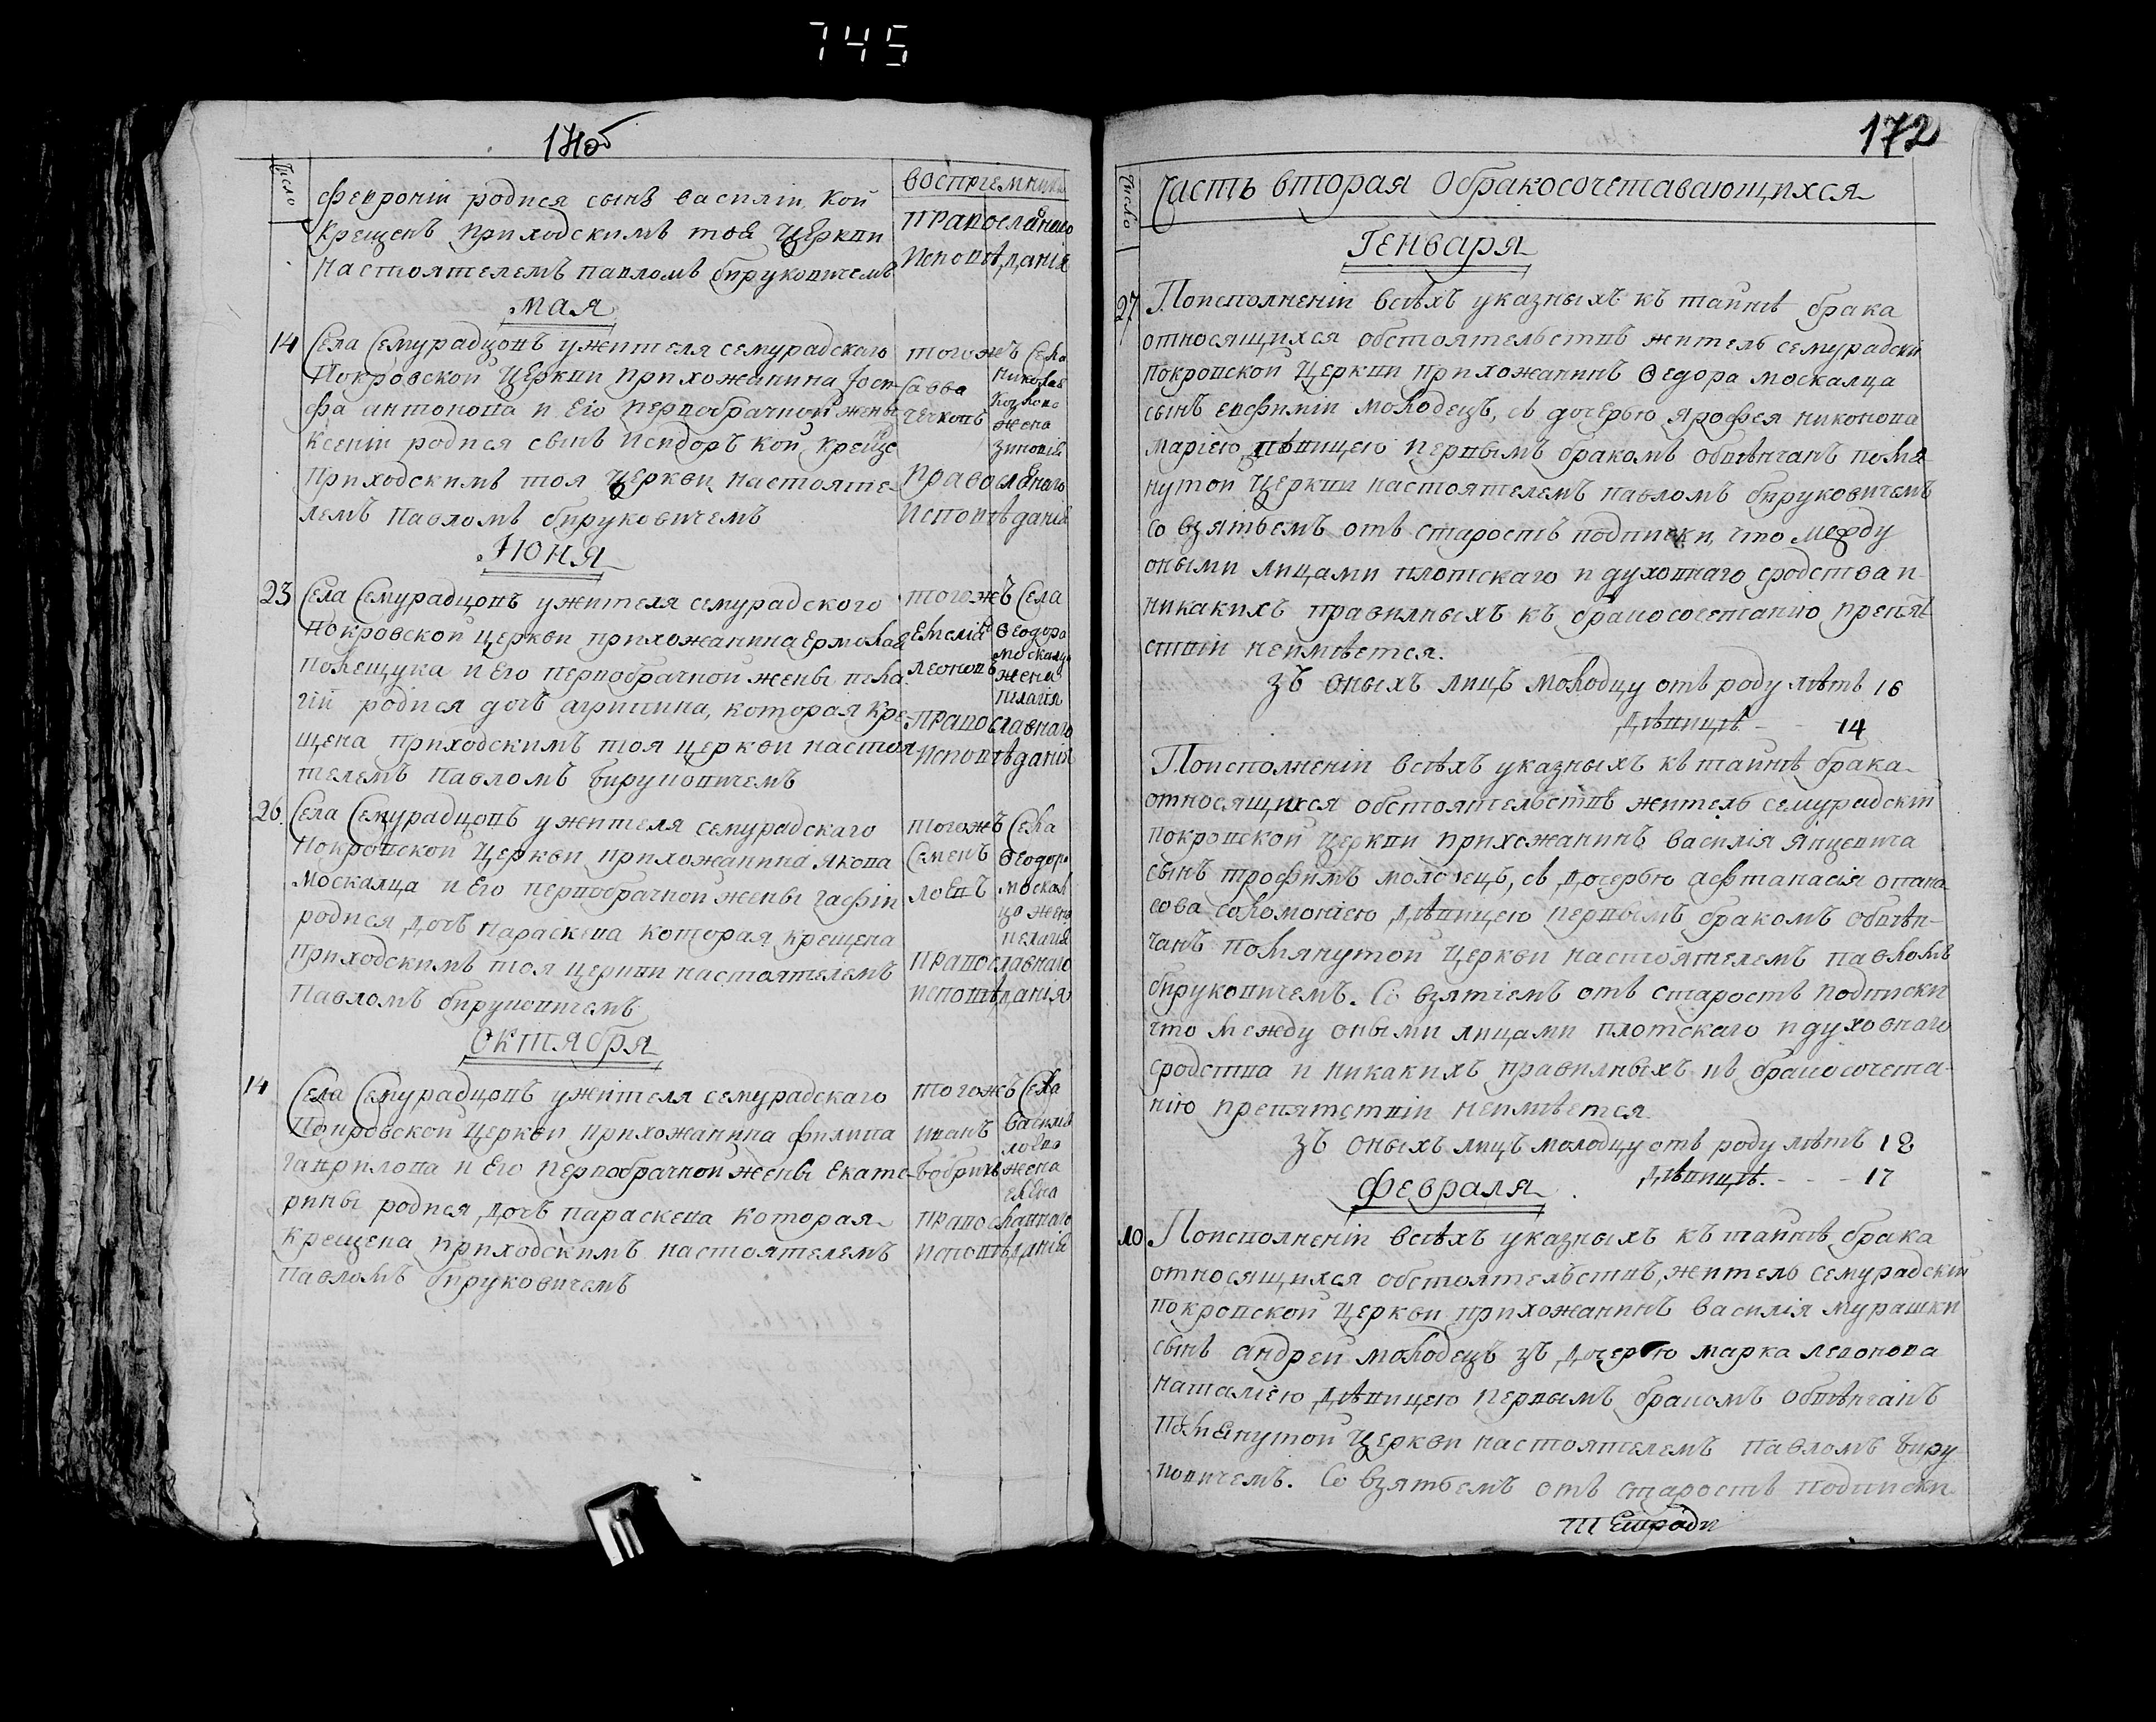 745
число
воспріемники
Февроніи родися сынъ василіи кой
крещенъ приходскимъ тоя Церкви
настоятелемъ павломъ бируковичемъ
православнаго
исповѣданія
мая
14 Села Семурадцовъ ужителя семурадскаго
Покровской Церкви прихожанина Іоси-
фа антонова и Его первобрачной жены
Ксеніи родися сынъ исидоръ кой креще
приходскимъ тоя Церкви настояте-
лемъ Павломъ бируковичемъ
тогожъ Села
Савва
николая
жена
зиновія
православнаго
исповѣданія
Июня
23 Села Семурадцовъ ужителя семурадского
покровской церкви прихожанина Ермолая
полещука и Его первобрачной жены пела
гіи родися дочъ агрипина, которая кре-
щена приходскимъ тоя церкви настоя
телемъ Павломъ бируковичемъ
тогожъ Села
Емеліа Ѳеодора
москалца
леоновъ жена
пилагія
православнаго
исповѣданія
26. Села Семурадцовъ ужителя семурадскаго
Покровской Церкви прихожанина якова
москалца и Его первобрачной жены гафіи
родися дочъ параскева которая крещена
приходскимъ тоя церкви настоятелемъ
Павломъ бируковичемъ
тогожъ Села
Семенъ Ѳеодора
лоевъ москал
ца жена
пелагия
православнаго
исповѣданія
Октября
14 Села Семурадцовъ ужителя семурадскаго
Покровской Церкви прихожанина филипа
гаврилова и Его первобрачной жены Екате-
рины родися дочъ параскева которая
крещена приходскимъ настоятелемъ
Павломъ бируковичемъ
тогожъ Села
иванъ василя
лоева
бобрикъ жена
елена
православнаго
исповѣданія
172
число
Часть вторая Обракосочетавающихся
Генваря
27 Поисполненіи всѣхъ указныхъ къ тайнѣ брака
относящихся обстоятельствъ житель семурадскіи
покровской Церкви прихожанинъ Ѳедора москалца
сынъ евфиміи молодецъ, съ дочерью Ярофея никонова
маріею дѣвицею первымъ бракомъ обвѣнчанъ помя
нутой Церкви настоятелемъ павломъ бируковичемъ
Со взятьемъ отъ старостъ подписки, что между
оными лицами плотскаго и духовнаго сродства и
никакихъ правилныхъ къ бракосочетанію препят
ствіи неимѣется.
зъ оныхъ лицъ молодцу отъ роду лѣтъ 16
Дѣвицѣ - - 14
Поисполненіи всѣхъ указныхъ къ тайнѣ брака
относящихся обстоятельствъ житель семурадскіи
покровской Церкви прихожанинъ василія Янцевича
сынъ трофимъ молодецъ, съ дочерью афтанасія опана
сова соломоніею дѣвицею первымъ бракомъ обвѣн-
чанъ помянутой Церкви настоятелемъ павломъ
бируковичемъ. Со взятіемъ отъ старостъ подписки
что между оными лицами плотскаго и духовнаго
сродства и никакихъ правилныхъ къ бракосочета-
нію препятствіи неимѣется
зъ оныхъ лицъ молодцу отъ роду лѣтъ 18
Дѣвицѣ. - - - 17
Февраля
10 Поисполненіи всѣхъ указныхъ къ тайнѣ брака
относящихся обстоятельствъ, житель семурадскіи
покровской Церкви прихожанинъ василія мурашки
сынъ андреи молодецъ зъ дочерью марка левонова
наталіею дѣвицею первымъ бракомъ обвѣнчанъ
помянутой Церкви настоятелемъ павломъ биру
ковичемъ. Со взятьемъ отъ старостъ подписки